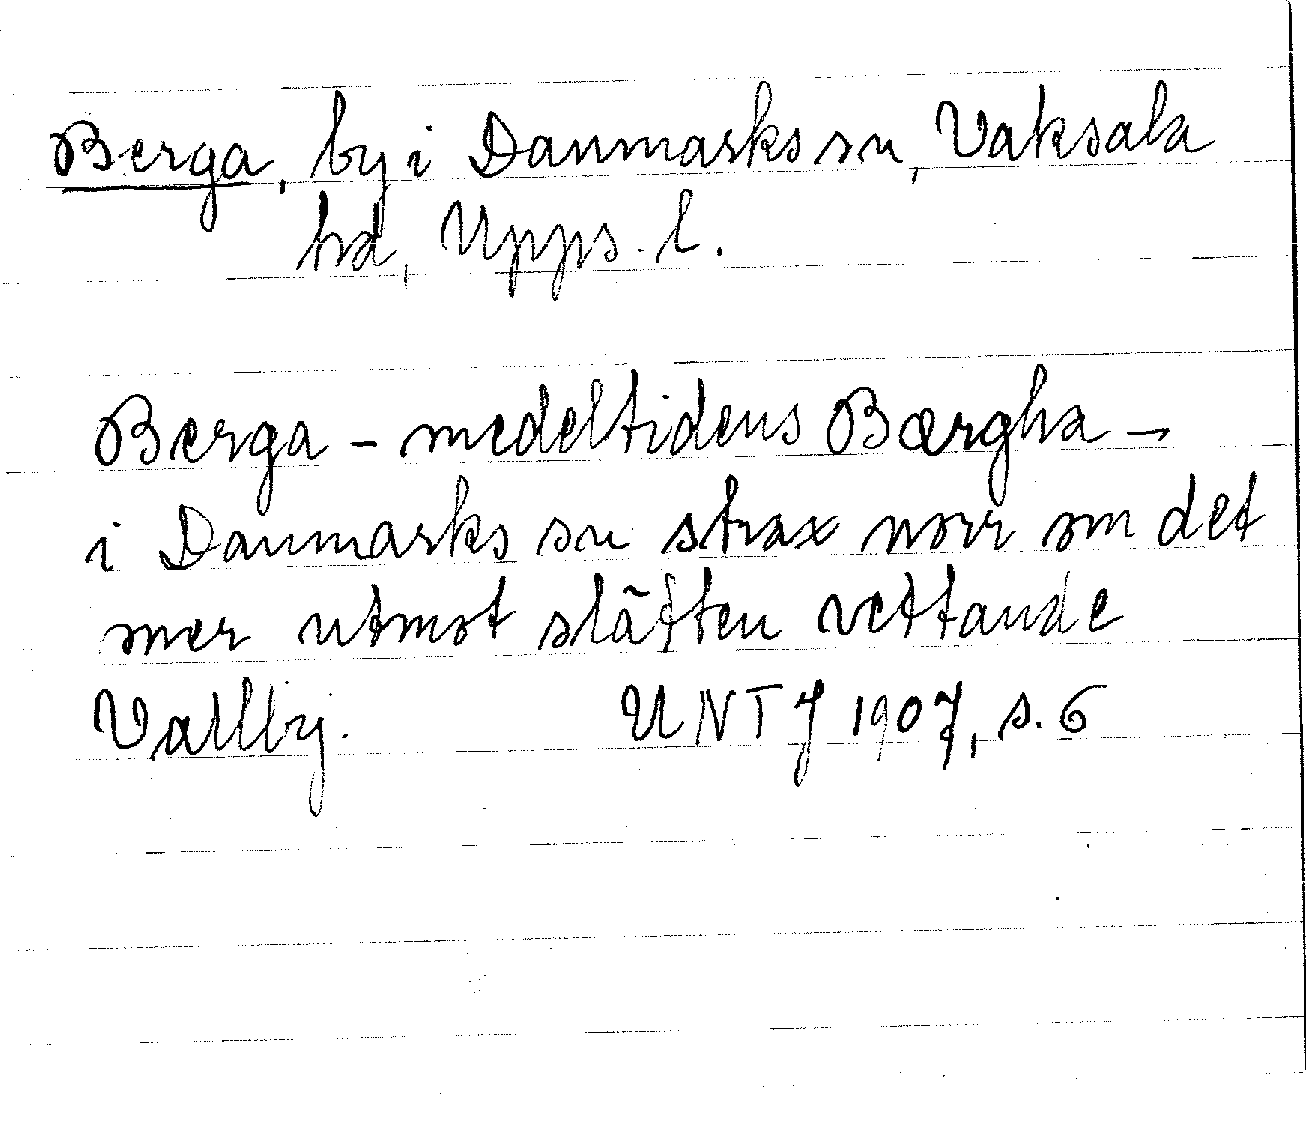 Berga, by i Danmarks sn, Vaksala
hd, Upps. l.
Berga - medeltidens Bærgha -
i Danmarks sn strax norr om det
mer utmot slätten vettande
Vallby. UNTJ 1907, s. 6